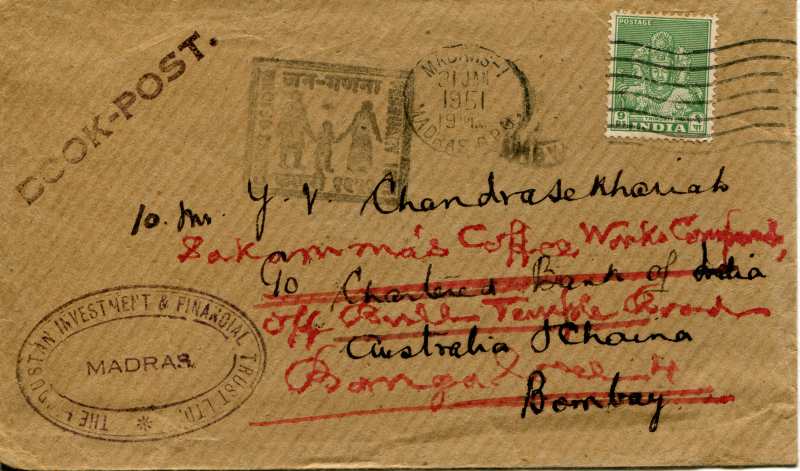 BOOK-POST.
जन-गणना
MADRAS-1
31 JAN
1951
MADRAS G.P.O.
POSTAGE
INDIA
To. Mr. Y. V. Chandrasekhariah
Sakamma's Coffee Works Compound,
C/o Chartered Bank of India
Off Bull Temple Road
Australia & Chaina
Bangalore 4
Bombay
THE HINDUSTAN INVESTMENT & FINANCIAL TRUST LTD.
MADRAS.